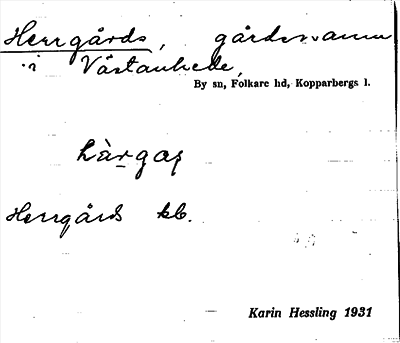 Herrgårds, gårdsnamn
i Västanhede,
By sn, Folkare hd, Kopparbergs l.
hàrgaṣ
Herrgårds kb.
Karin Hessling 1931